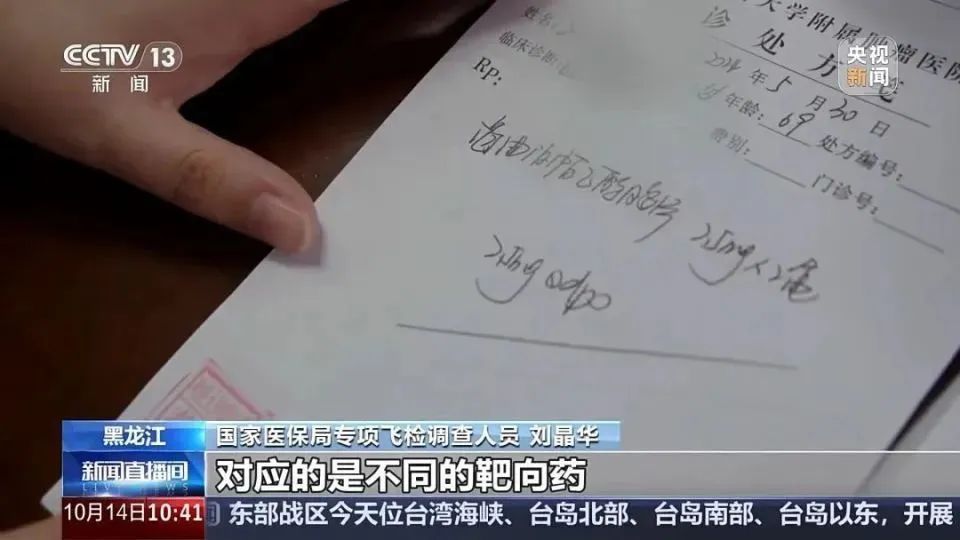 CCTV 13
新闻
央视
新闻
大学附属肿瘤医院
诊处方笺
姓名:
2024年5月30日
临床诊断:
年龄: 69 处方编号:
费别: 门诊号:
Rp:
25mg×2盒
25mg qd po
黑龙江
国家医保局专项飞检调查人员 刘晶华
新闻直播间
LIVE NEWS
对应的是不同的靶向药
10月14日10:41
东部战区今天位台湾海峡、台岛北部、台岛南部、台岛以东，开展